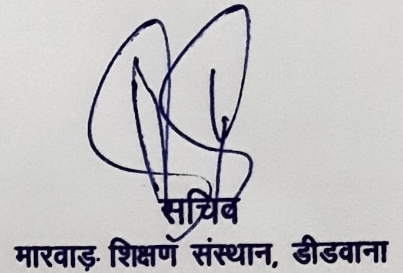 सचिव
मारवाड़ शिक्षण संस्थान, डीडवाना